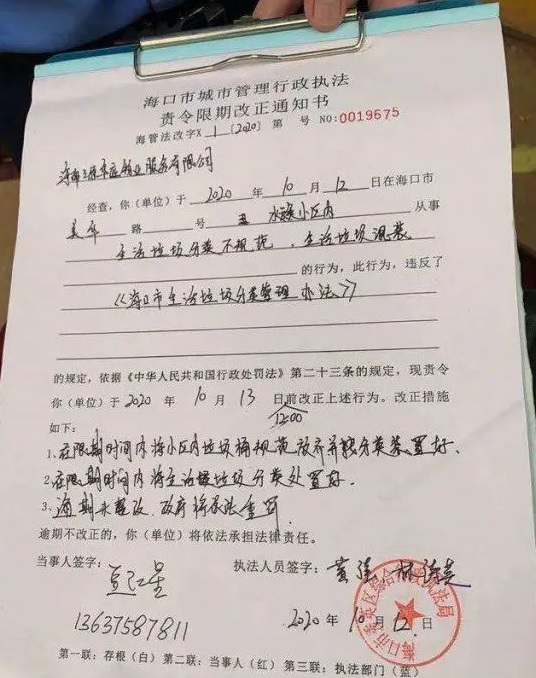 海口市城市管理行政执法
责令限期改正通知书
海管法改字X 1 [2020] 第 号 NO:0019675
海南 物业服务有限公司
经查，你（单位）于 2020 年 10 月 12 日在海口市
美华 路 号 小区内 从事
生活垃圾分类不规范，生活垃圾混装
的行为，此行为，违反了
《海口市生活垃圾分类管理办法》
的规定，依据《中华人民共和国行政处罚法》第二十三条的规定，现责令
你（单位）于 2020 年 10 月 13 日前改正上述行为。改正措施
12:00
如下：
1、在限期时间内将小区内垃圾桶规范放齐并 分类装置好.
2、在限期时间内将生活 垃圾分类处置好.
3、逾期未整改，政府将依法重罚.
逾期不改正的，你（单位）将依法承担法律责任。
当事人签字： 执法人员签字：
红星
13637587811
2020 年 10 月 12 日
海口市秀英区综合行政执法局
第一联：存根（白）第二联：当事人（红）第三联：执法部门（蓝）